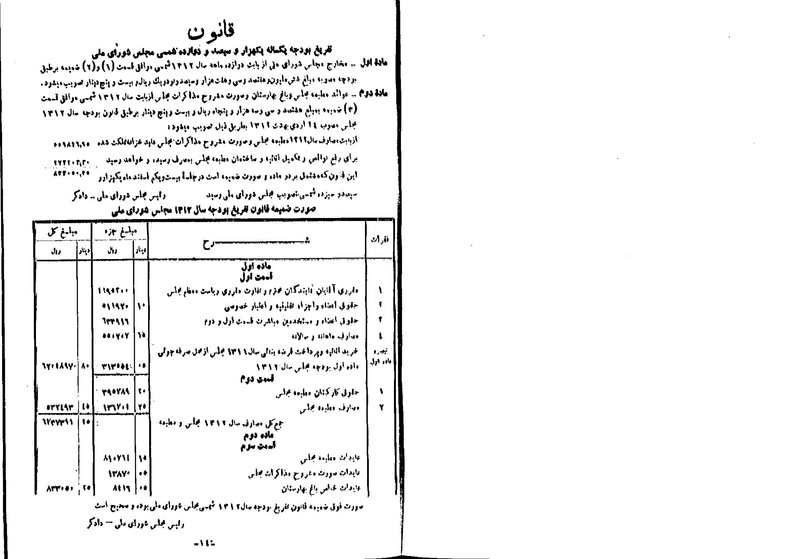 قانون
تفریغ بودجه یکساله یکهزار و سیصد و دوازده شمسی مجلس شورای ملی
مادهٔ اول – مخارج مجلس شورای ملی از بابت دوازده ماهه سال ۱۳۱۲ شمسی موافق قسمت (۱) و (۲) ضمیمه بر طبق
بودجه مصوبه بمبلغ شش ملیون و هفتصد و سی و هفت هزار و سیصد و نود و یک ریال و بیست و پنج دینار تصویب میشود.
مادهٔ دوم – عوائد مطبعه مجلس و باغ بهارستان و صورت مشروح مذاکرات مجلس از بابت سال ۱۳۱۲ شمسی موافق قسمت
(۳) ضمیمه بمبلغ هشتصد و سی و سه هزار و پنجاه ریال و بیست و پنج دینار بر طبق قانون بودجه سال ۱۳۱۲
مجلس مصوب ۲۴ اردی بهشت ۱۳۱۲ بطریق ذیل تصویب میشود:
از بابت مصارف سال ۱۳۱۲ مطبعه مجلس و صورت مشروح مذاکرات مجلس عاید خزانه مملکت شده
برای رفع نواقص و تکمیل اثاثیه و ساختمان مطبعه مجلس بمصرف رسیده و خواهد رسید
۸۳۳۰۵۰,۲۵
این قانون که مشتمل بر دو ماده و صورت ضمیمه است در جلسه بیست و یکم اسفند ماه یکهزار و
سیصد و سیزده شمسی بتصویب مجلس شورای ملی رسید رئیس مجلس شورای ملی – دادگر
صورت ضمیمه قانون تفریغ بودجه سال ۱۳۱۲ مجلس شورای ملی
فقرات شرح مبالغ جزء مبالغ کل
دینار ریال دینار ریال
ماده اول
قسمت اول
۱ مقرری آقایان نمایندگان محترم و تفاوت مقرری ریاست معظم مجلس ۴۱۹۵۲۰۰
۲ حقوق اعضاء و اجزاء تقنینیه و اعتبار خصوصی ۱۰ ۵۱۱۹۲۰
۳ حقوق اعضاء و مستخدمین مباشرت قسمت اول و دوم ۶۳۳۹۱۶
۴ مصارف ماهانه و سالانه ۶۵ ۵۵۰۷۰۷
تبصره ماده اول خرید اثاثیه و پرداخت قرضه بنائی سال ۱۳۱۱ از محل صرفه جوئی
ماده اول بودجه مجلس سال ۱۳۱۲ ۰۵ ۳۱۳۵۵۴ ۸۰ ۶۲۰۴۸۹۷
قسمت دوم
۱ حقوق کارکنان مطبعه مجلس ۲۰ ۳۹۵۷۸۹
۲ مصارف مطبعه مجلس ۲۵ ۱۳۶۷۰۴ ۴۵ ۵۳۲۴۹۳
جمع کل مصارف سال ۱۳۱۲ مجلس و مطبعه ۲۵ ۶۷۳۷۳۹۱
ماده دوم
قسمت سوم
عایدات مطبعه مجلس ۱۵ ۸۱۰۷۶۴
عایدات صورت مشروح مذاکرات مجلس ۰۵ ۱۳۸۷۰
عایدات خالص باغ بهارستان ۰۵ ۸۴۱۶ ۲۵ ۸۳۳۰۵۰
صورت فوق ضمیمه قانون تفریغ بودجه سال ۱۳۱۲ شمسی مجلس شورای ملی بوده و صحیح است
رئیس مجلس شورای ملی – دادگر
-۱۴-